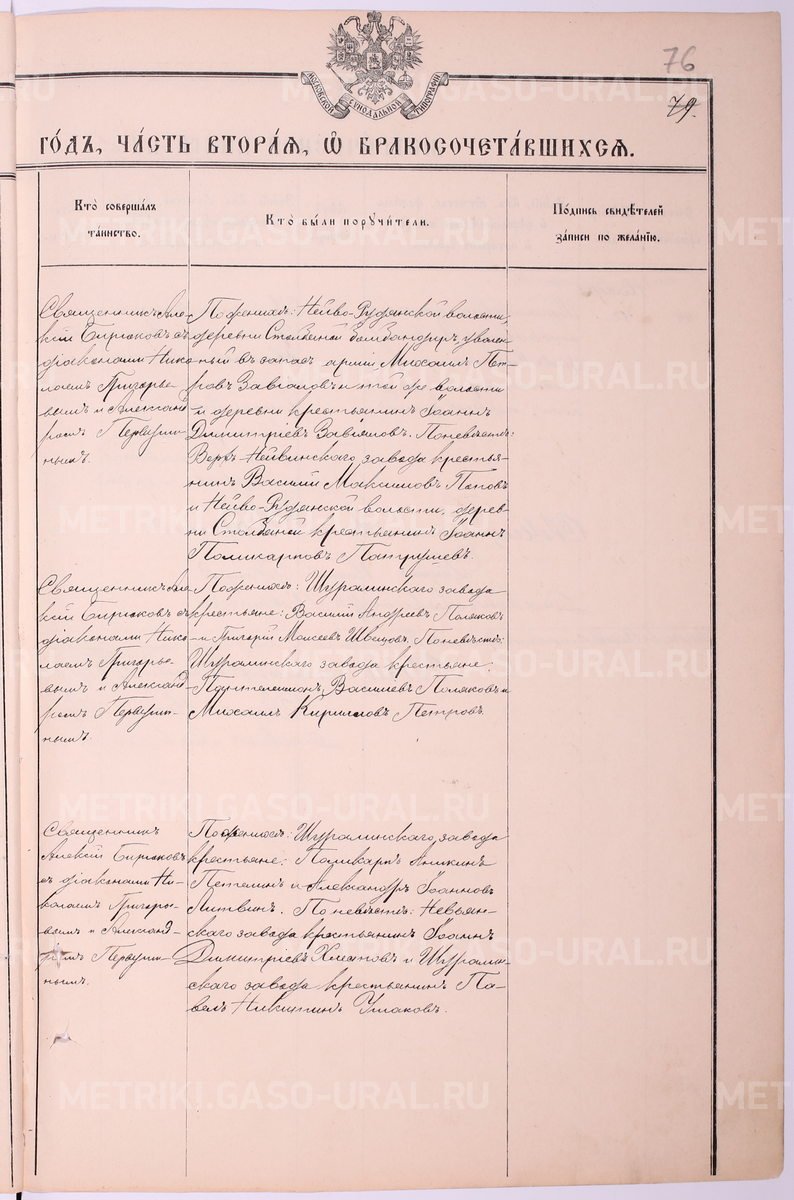 76
79.
МОСКОВСКОЙ СѴНОДАЛЬНОЙ ТИПОГРАФІИ
ГО́ДЪ, ЧА́СТЬ ВТОРА́Я, Ѽ БРАКОСОЧЕТА́ВШИХСЯ.
Кто̀ соверша́лъ
та́инство.
Кто̀ бы́ли поручи́тели.
По́дпись свидѣ́телей
за́писи по жела́нію.
Священникъ Але-
ксій Бирюковъ съ
діаконами Нико-
лаемъ Григорье-
вымъ и Александ
ромъ Первуши-
нымъ.
По женихѣ: Нейво-Рудянской волости,
деревни Столбяной бомбандиръ, уволен
ный въ запасъ арміи Михаилъ Пет-
ровъ Завіаловъ и той же волости
и деревни крестьянинъ Іоаннъ
Димитріевъ Завіяловъ. По невѣстѣ:
Верхъ-Нейвинскаго завода крестья-
нинъ Василій Максимовъ Поповъ
и Нейво-Рудянской волости, дерев
ни Столбяной крестьянинъ Іоаннъ
Поликарповъ Патрушевъ.
Священникъ Але
ксій Бирюковъ съ
діаконами Нико
лаемъ Григорье-
вымъ и Александ
ромъ Первуши-
нымъ.
По женихѣ: Шуралинскаго завода
крестьяне: Василій Андреевъ Поляковъ
и Григорій Моисеевъ Швецовъ. По невѣстѣ:
Шуралинскаго завода крестьяне:
Пантелеимонъ Васильевъ Поляковъ и
Михаилъ Кирилловъ Петровъ.
Священникъ
Алексій Бирюковъ
съ діаконами Ни-
колаемъ Григорье-
вымъ и Александ-
ромъ Первуши-
нымъ.
По женихѣ: Шуралинскаго завода
крестьяне: Поликарпъ Аникинъ
Петелинъ и Александръ Іоанновъ
Литвинъ. По невѣстѣ: Невьян-
скаго завода крестьянинъ Іоаннъ
Димитріевъ и Шуралин-
скаго завода крестьянинъ Па-
велъ Никитинъ Ушаковъ.
METRIKI.GASO-URAL.RU